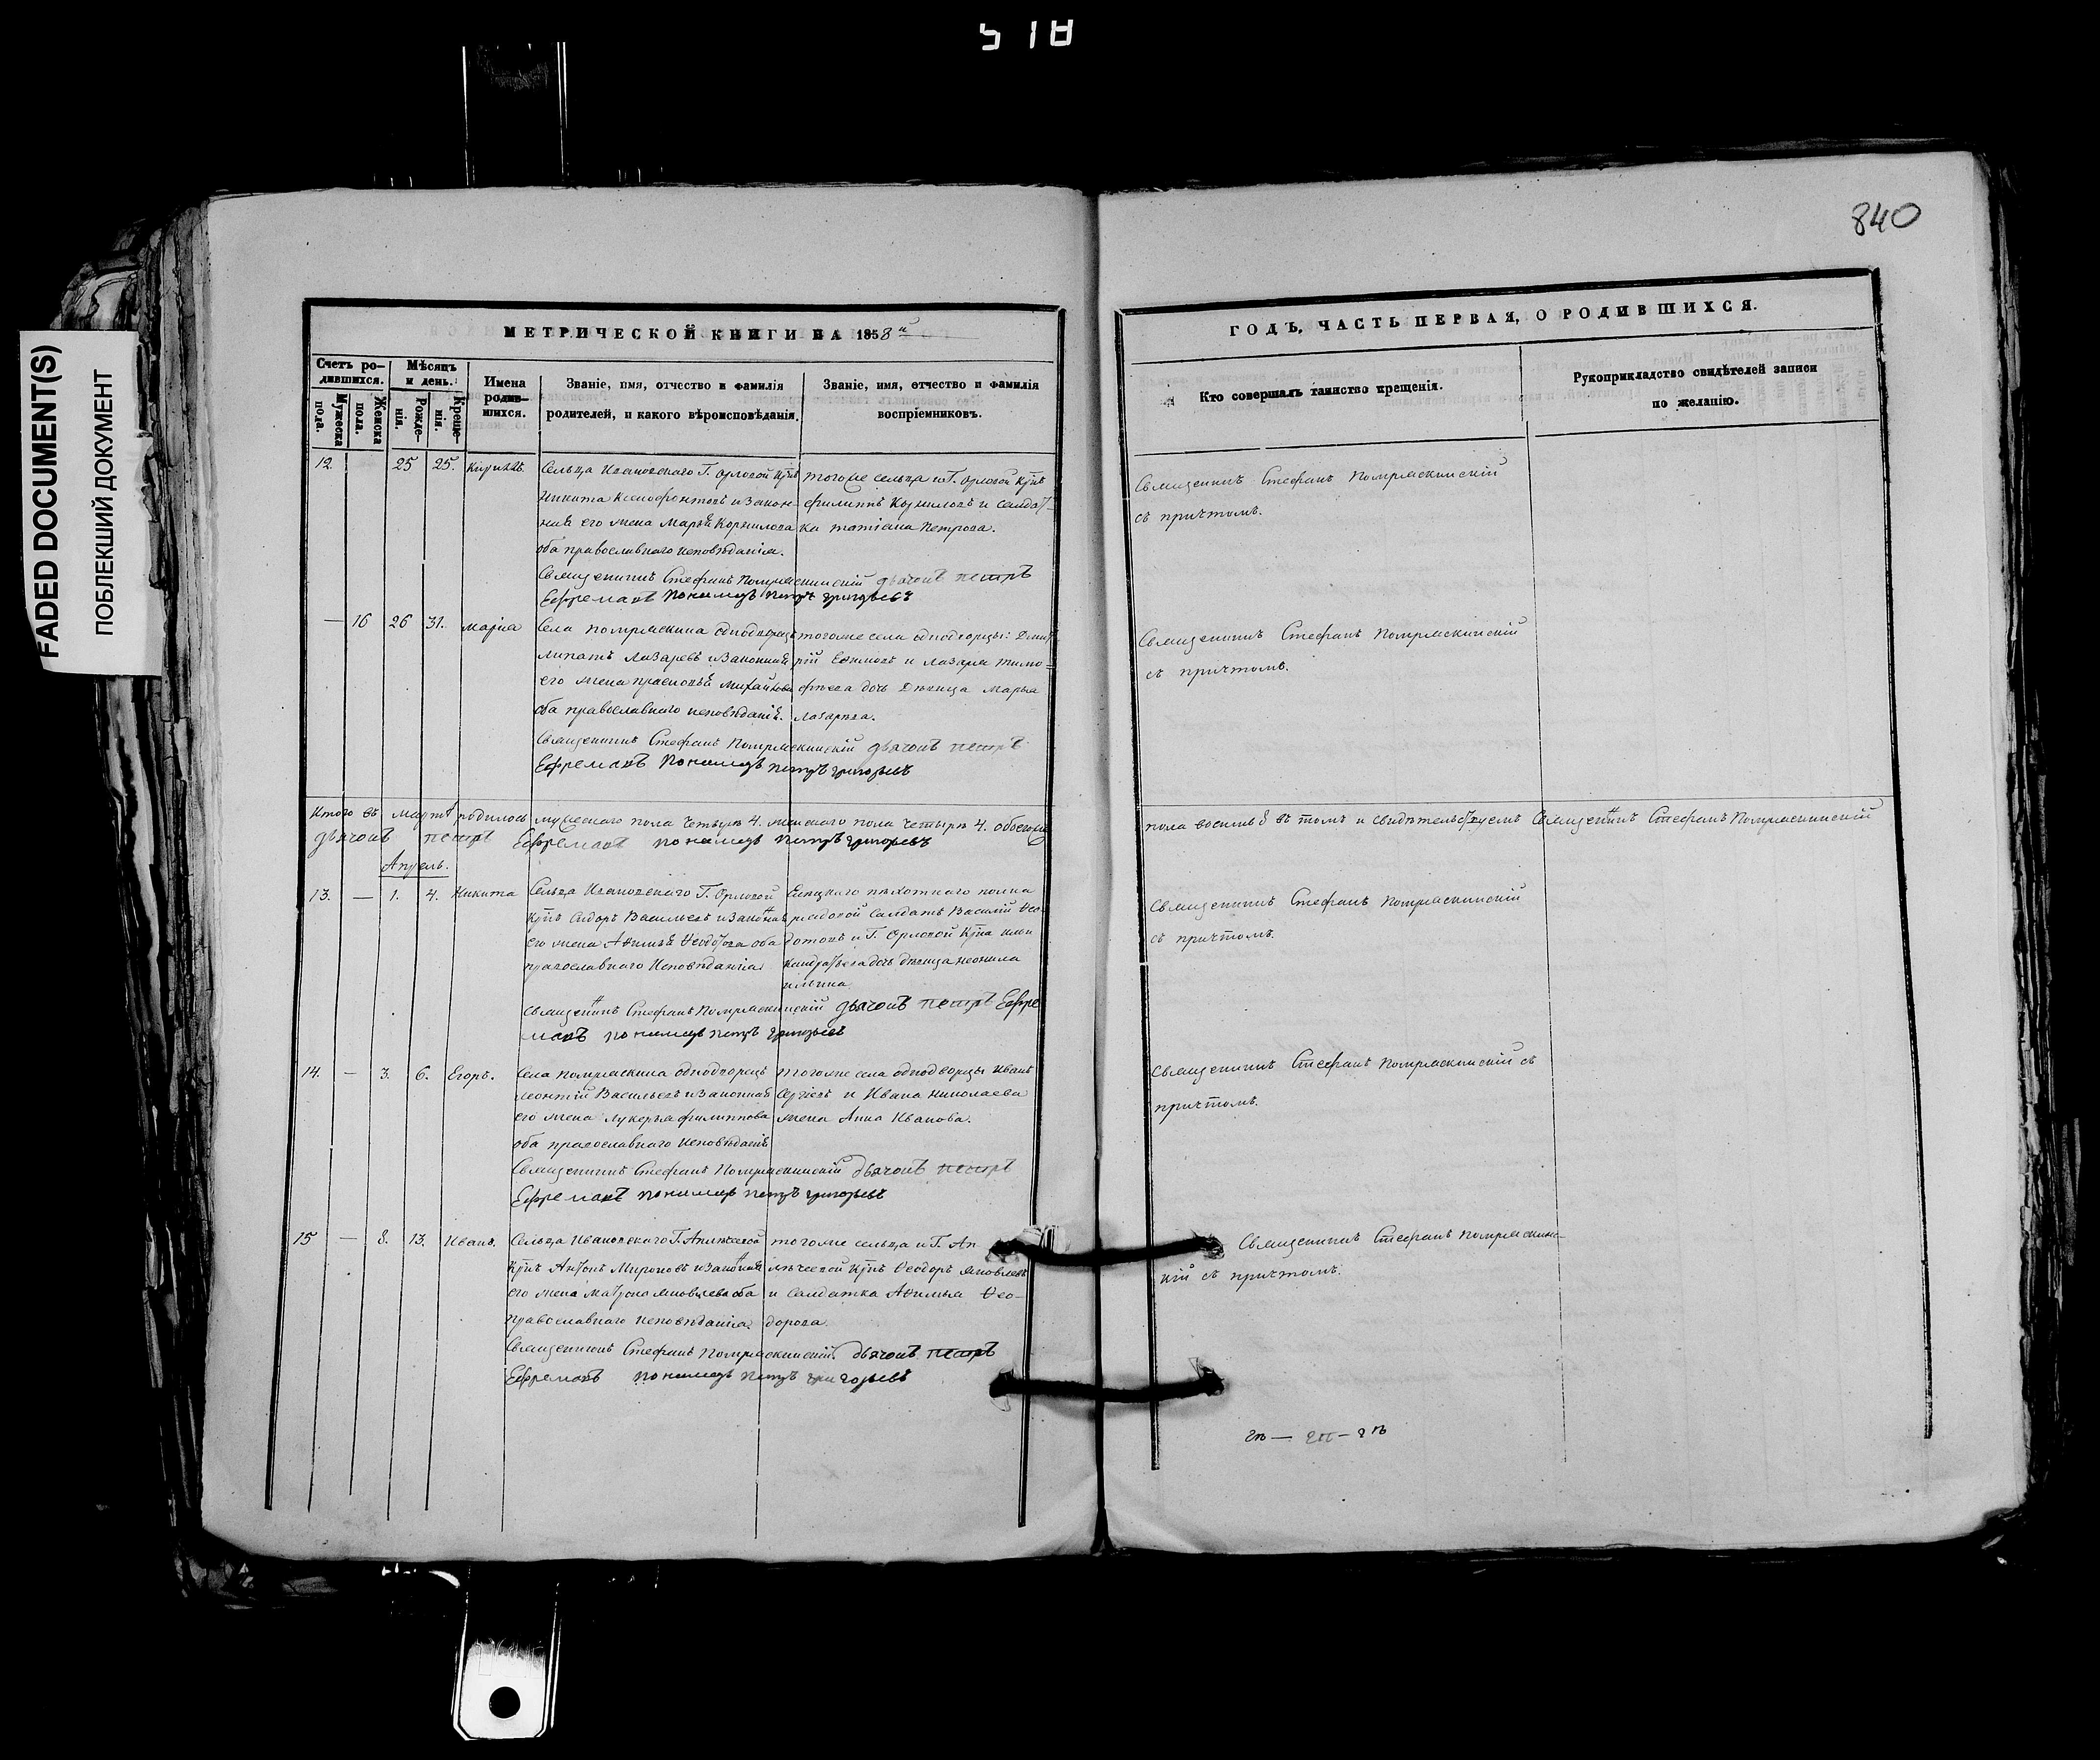 518
840
FADED DOCUMENT(S)
ПОБЛЕКШИЙ ДОКУМЕНТ
МЕТРИЧЕСКОЙ КНИГИ НА 1858й
Счетъ ро-
дившихся.
Мужеска
пола.
Женска
пола.
Мѣсяцъ
и день.
Рожде-
нія.
Креще-
нія.
Имена
родив-
шихся.
Званіе, имя, отчество и фамилія
родителей, и какого вѣроисповѣданія.
Званіе, имя, отчество и фамилія
воспріемниковъ.
12. 25 25. Кириллъ.
Сельца Ивановскаго Г. Орловой Крнъ
Никита Ксенофонтовъ и закон-
ная его жена Марья Корнилова
оба православнаго исповѣданія.
тогоже сельца и Г. Орловой Крнъ
Филиппъ Корниловъ и солдат-
ка Татіана Петрова.
Священникъ Стефанъ дьячокъ Петръ
Ефремовъ Пономарь Петръ Григорьевъ
— 16 26 31. Марія
Села однодворецъ
Липатъ Лазаревъ и законная
его жена Прасковья Михайлова
оба православнаго исповѣданія.
тогоже села однодворцы: Дмит-
рій Ефимовъ и Лазаря Тимо=
фѣева дочь Дѣвица Марья
Лазарева.
Священникъ Стефанъ дьячокъ Петръ
Ефремовъ Пономарь Петръ Григорьевъ
Итого въ мартѣ родилось мужескаго пола четыре 4. женскаго пола четыре 4. обоего
дьячокъ Петръ Ефремовъ пономарь Петръ Григорьевъ
Апрель.
13. — 1. 4. Никита
Сельца Ивановскаго Г. Орловой
Крнъ Сидоръ Васильевъ и законная
его жена Афимья Ѳеодотова оба
православнаго Исповѣданія.
Елецкаго пѣхотнаго полка
рядовой Солдатъ Василій Ѳео-
дотовъ и Г. Орловой Крна Ильи
Кондратьева дочь дѣвица Неонила
Ильина.
Священникъ Стефанъ дьячокъ Петръ Ефре
мовъ пономарь Петръ Григорьевъ
14. — 3. 6. Егоръ.
Села однодворецъ
Леонтій Васильевъ и законная
его жена Лукерья Филиппова
оба православнаго исповѣданія
тогоже села однодворцы Иванъ
Сергѣевъ и Ивана Николаева
жена Анна Иванова.
Священникъ Стефанъ дьячокъ Петръ
Ефремовъ пономарь Петръ Григорьевъ
15 — 8. 13. Иванъ.
Сельца Ивановскаго Г.
Крнъ Антонъ Мироновъ и законная
его жена Матрона Яковлева оба
православнаго исповѣданія.
тогоже сельца и Г.
Крнъ Ѳеодоръ Яковлевъ
и Солдатка Афимья Ѳео-
дорова.
Священникъ Стефанъ дьячокъ Петръ
Ефремовъ пономарь Петръ Григорьевъ
ГОДЪ, ЧАСТЬ ПЕРВАЯ, О РОДИВШИХСЯ.
Кто совершалъ таинство крещенія.
Рукоприкладство свидѣтелей записи
по желанію.
Священникъ Стефанъ
съ причтомъ.
Священникъ Стефанъ
съ причтомъ.
пола восемь 8 въ томъ и свидѣтельствуемъ Священникъ Стефанъ
Священникъ Стефанъ
съ причтомъ.
Священникъ Стефанъ съ
причтомъ.
Священникъ Стефанъ
съ причтомъ.